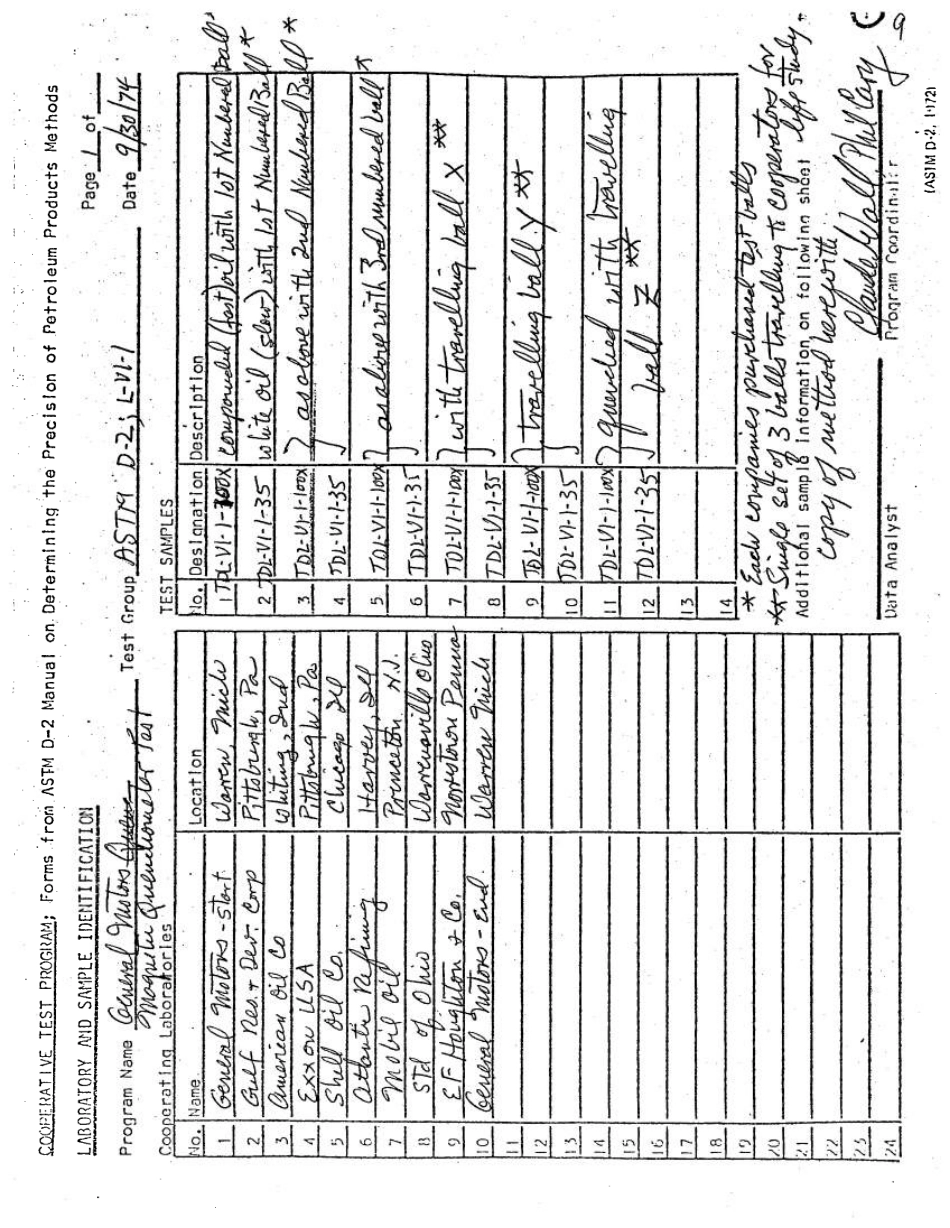 COOPERATIVE TEST PROGRAM; Forms from ASTM D-2 Manual on Determining the Precision of Petroleum Products Methods
LABORATORY AND SAMPLE IDENTIFICATION
Page 1 of
Program Name General Motors Quen
Magnetic Quenchometer Test
Test Group ASTM D-2; L-VI-1
Date 9/30/74
Cooperating Laboratories
No. Name Location
1 General Motors - Start Warren, Mich
2 Gulf Res. + Dev. Corp Pittsburgh, Pa
3 American Oil Co Whiting, Ind
4 Exxon USA Pittsburgh, Pa
5 Shell Oil Co. Chicago Ill
6 Atlantic Refining Harvey, Ill
7 Mobil Oil Princeton N.J.
8 Std of Ohio Warrensville Ohio
9 EF Houghton + Co. Norristown Penna
10 General Motors - End. Warren Mich
11
12
13
14
15
16
17
18
19
20
21
22
23
24
TEST SAMPLES
No. Designation Description
1 TDL-VI-1-100X compounded (fast) oil with 1st Numbered Ball *
2 TDL-VI-1-35 white oil (slow) with 1st Numbered Ball *
3 TDL-VI-1-100X } as above with 2nd Numbered Ball *
4 TDL-VI-1-35
5 TDL-VI-1-100X } as above with 3rd numbered ball *
6 TDL-VI-1-35
7 TDL-VI-1-100X } with travelling ball X **
8 TDL-VI-1-35
9 TDL-VI-1-100X } travelling ball Y **
10 TDL-VI-1-35
11 TDL-VI-1-100X } quenched with travelling
12 TDL-VI-1-35 ball Z **
13
14
* Each companies purchased test balls
** Single set of 3 balls travelling to cooperators for
Additional sample information on following sheet life study.
Copy of method herewith
Data Analyst
Program Coordinator
9
(ASTM D-2, 1972)